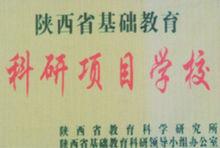 陕西省基础教育
科研项目学校
陕西省教育科学研究所
陕西省基础教育科研领导小组办公室